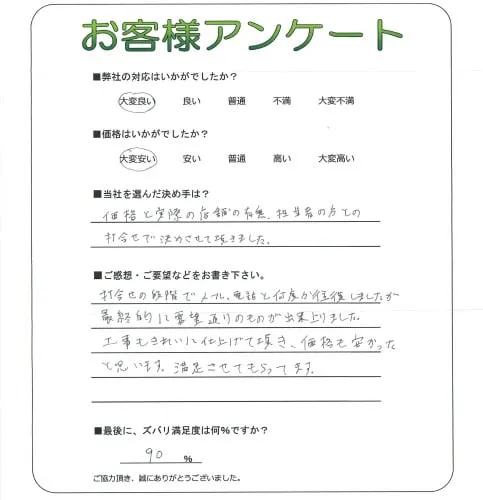 お客様アンケート
■弊社の対応はいかがでしたか？
大変良い 良い 普通 不満 大変不満
■価格はいかがでしたか？
大変安い 安い 普通 高い 大変高い
■当社を選んだ決め手は？
価格と実際の店舗の有無、担当者の方との
打合せで決めさせて頂きました。
■ご感想・ご要望などをお書き下さい。
打合せの段階でメール、電話と何度か往復しましたが
最終的に要望通りのものが出来上りました。
工事もきれいに仕上げて頂き、価格も安かった
と思います。満足させてもらってます。
■最後に、ズバリ満足度は何％ですか？
90 ％
ご協力頂き、誠にありがとうございました。